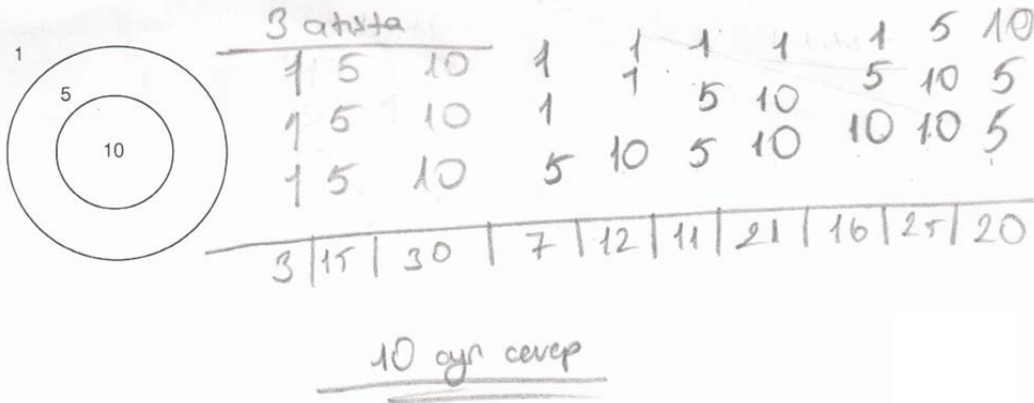 3 atışta
1 5 10 1 1 1 1 1 5 10
1 5 10 1 1 5 10 5 10 5
1 5 10 5 10 5 10 10 10 5
3 | 15 | 30 | 7 | 12 | 11 | 21 | 16 | 25 | 20
1
5
10
10 ayrı cevap